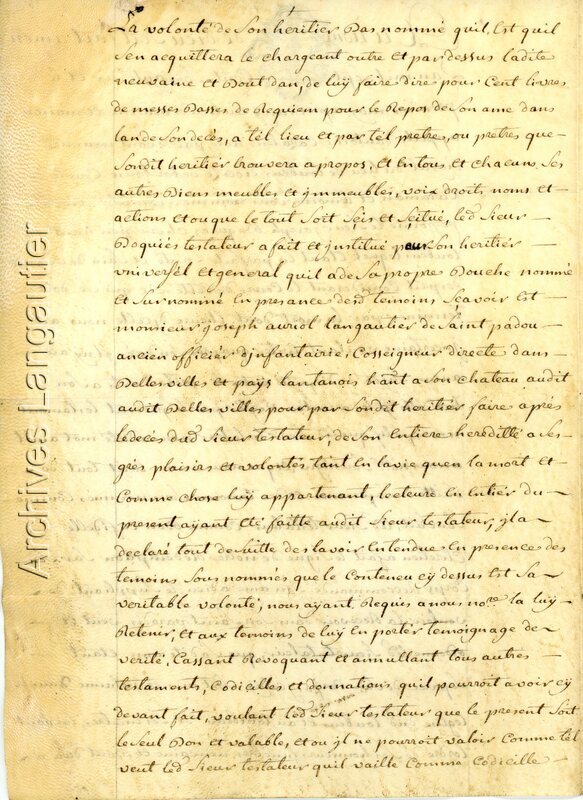 La volonté de son heritier bas nommé quil Est quil
sen acquittera le chargeant outre et par dessus ladite
neuvaine et bout dan, de luÿ faire dire pour Cent livres
de messes basses de Requiem pour le Repos de Son ame dans
lan de Son deces, a tél lieu et par tél pretre, ou pretres que
Sondit heritiér trouvera a propos, et En tous et chacuns Ses
autres biens meubles et ÿmmeubles, voix droits, noms et
actions et ou que le tout Soit Séis et Séitué, led Sieur
Boquiés testateur a fait et ÿnstitué pour Son heritiér
vniversél et general quil a de Sa propre bouche nommé
et Surnommé En presance desd temoins Sçavoir Est
monsieur ȷoseph auriol langautier de Saint padou
ancien officiér dÿnfantairie, Cosseigneur directe dans
Belles villes et païs lantanois haut a Son chateau audit
audit Belles villes pour par Sondit heritiér faire aprés
le decés dud Sieur testateur, de Son Entiere heredillé a Ses
grés plaisirs et volontés tant En la vie quen la mort et
Comme Chose luÿ appartenant, lecture En Entiér du
present aÿant été faitte audit Sieur testateur, ÿl a
declaré tout de Suitte de lavoir Entendue En presence des
temoins Sous nommés que le Conteneu cÿ dessus Est Sa
veritable volonté, nous aÿant Requis a nous nore la luÿ
Retenir, et aux temoins de luÿ En portér temoignage de
verité, Cassant Revoquant et annullant tous autres
testaments, Codicilles et donnations quil pourroit avoir cÿ
devant fait, voulant led Sieur testateur que le present Soit
le Seul bon et valable, et ou ÿl ne pourroit valoir Comme tél
veut led Sieur testateur quil vaille Comme Codicille
Archives Langautier